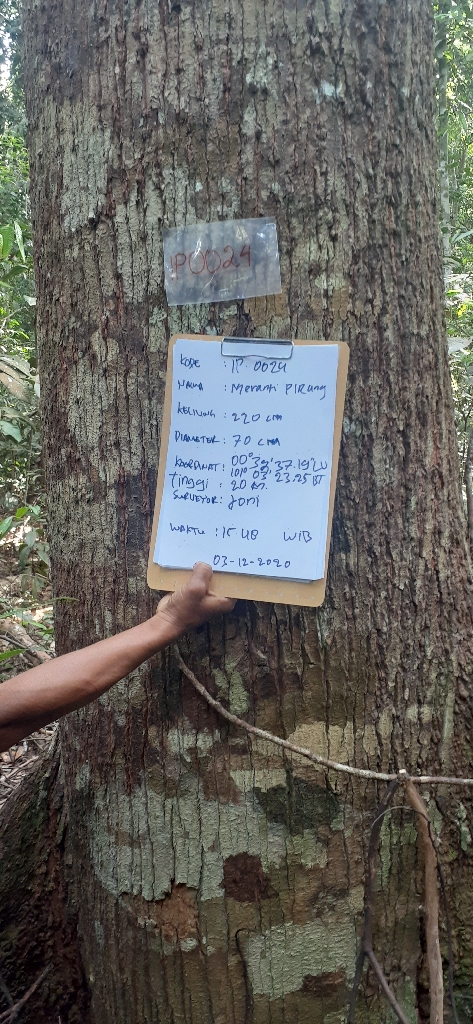 IP0024
KODE : IP. 0024
NAMA : Meranti PIRang
KELILING : 220 cm
DIAMETER : 70 cm
KOORDINAT : 00° 39' 37.19" LU
101° 03' 23.25" BT
Tinggi : 20 m.
SURVEYOR : Joni
WAKTU : 15 48 WIB
03-12-2020